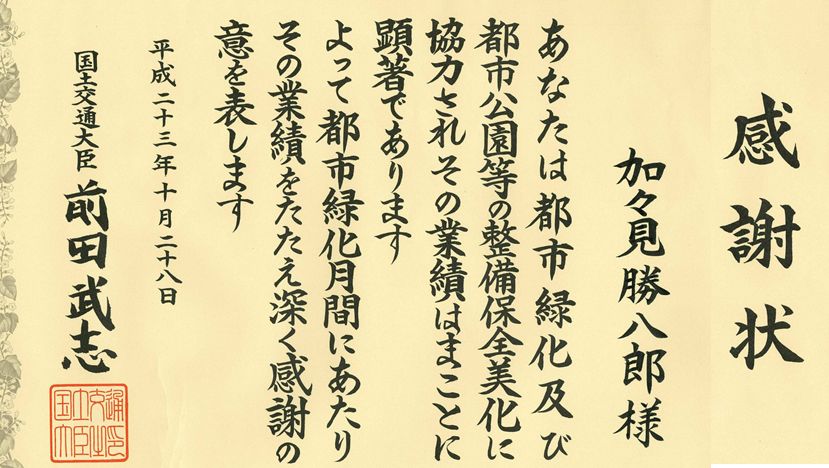 感謝状
加々見勝八郎様
あなたは都市緑化及び
都市公園等の整備保全美化に
協力されその業績はまことに
顕著であります
よって都市緑化月間にあたり
その業績をたたえ深く感謝の
意を表します
平成二十三年十月二十八日
国土交通大臣 前田武志
国土交通大臣之印